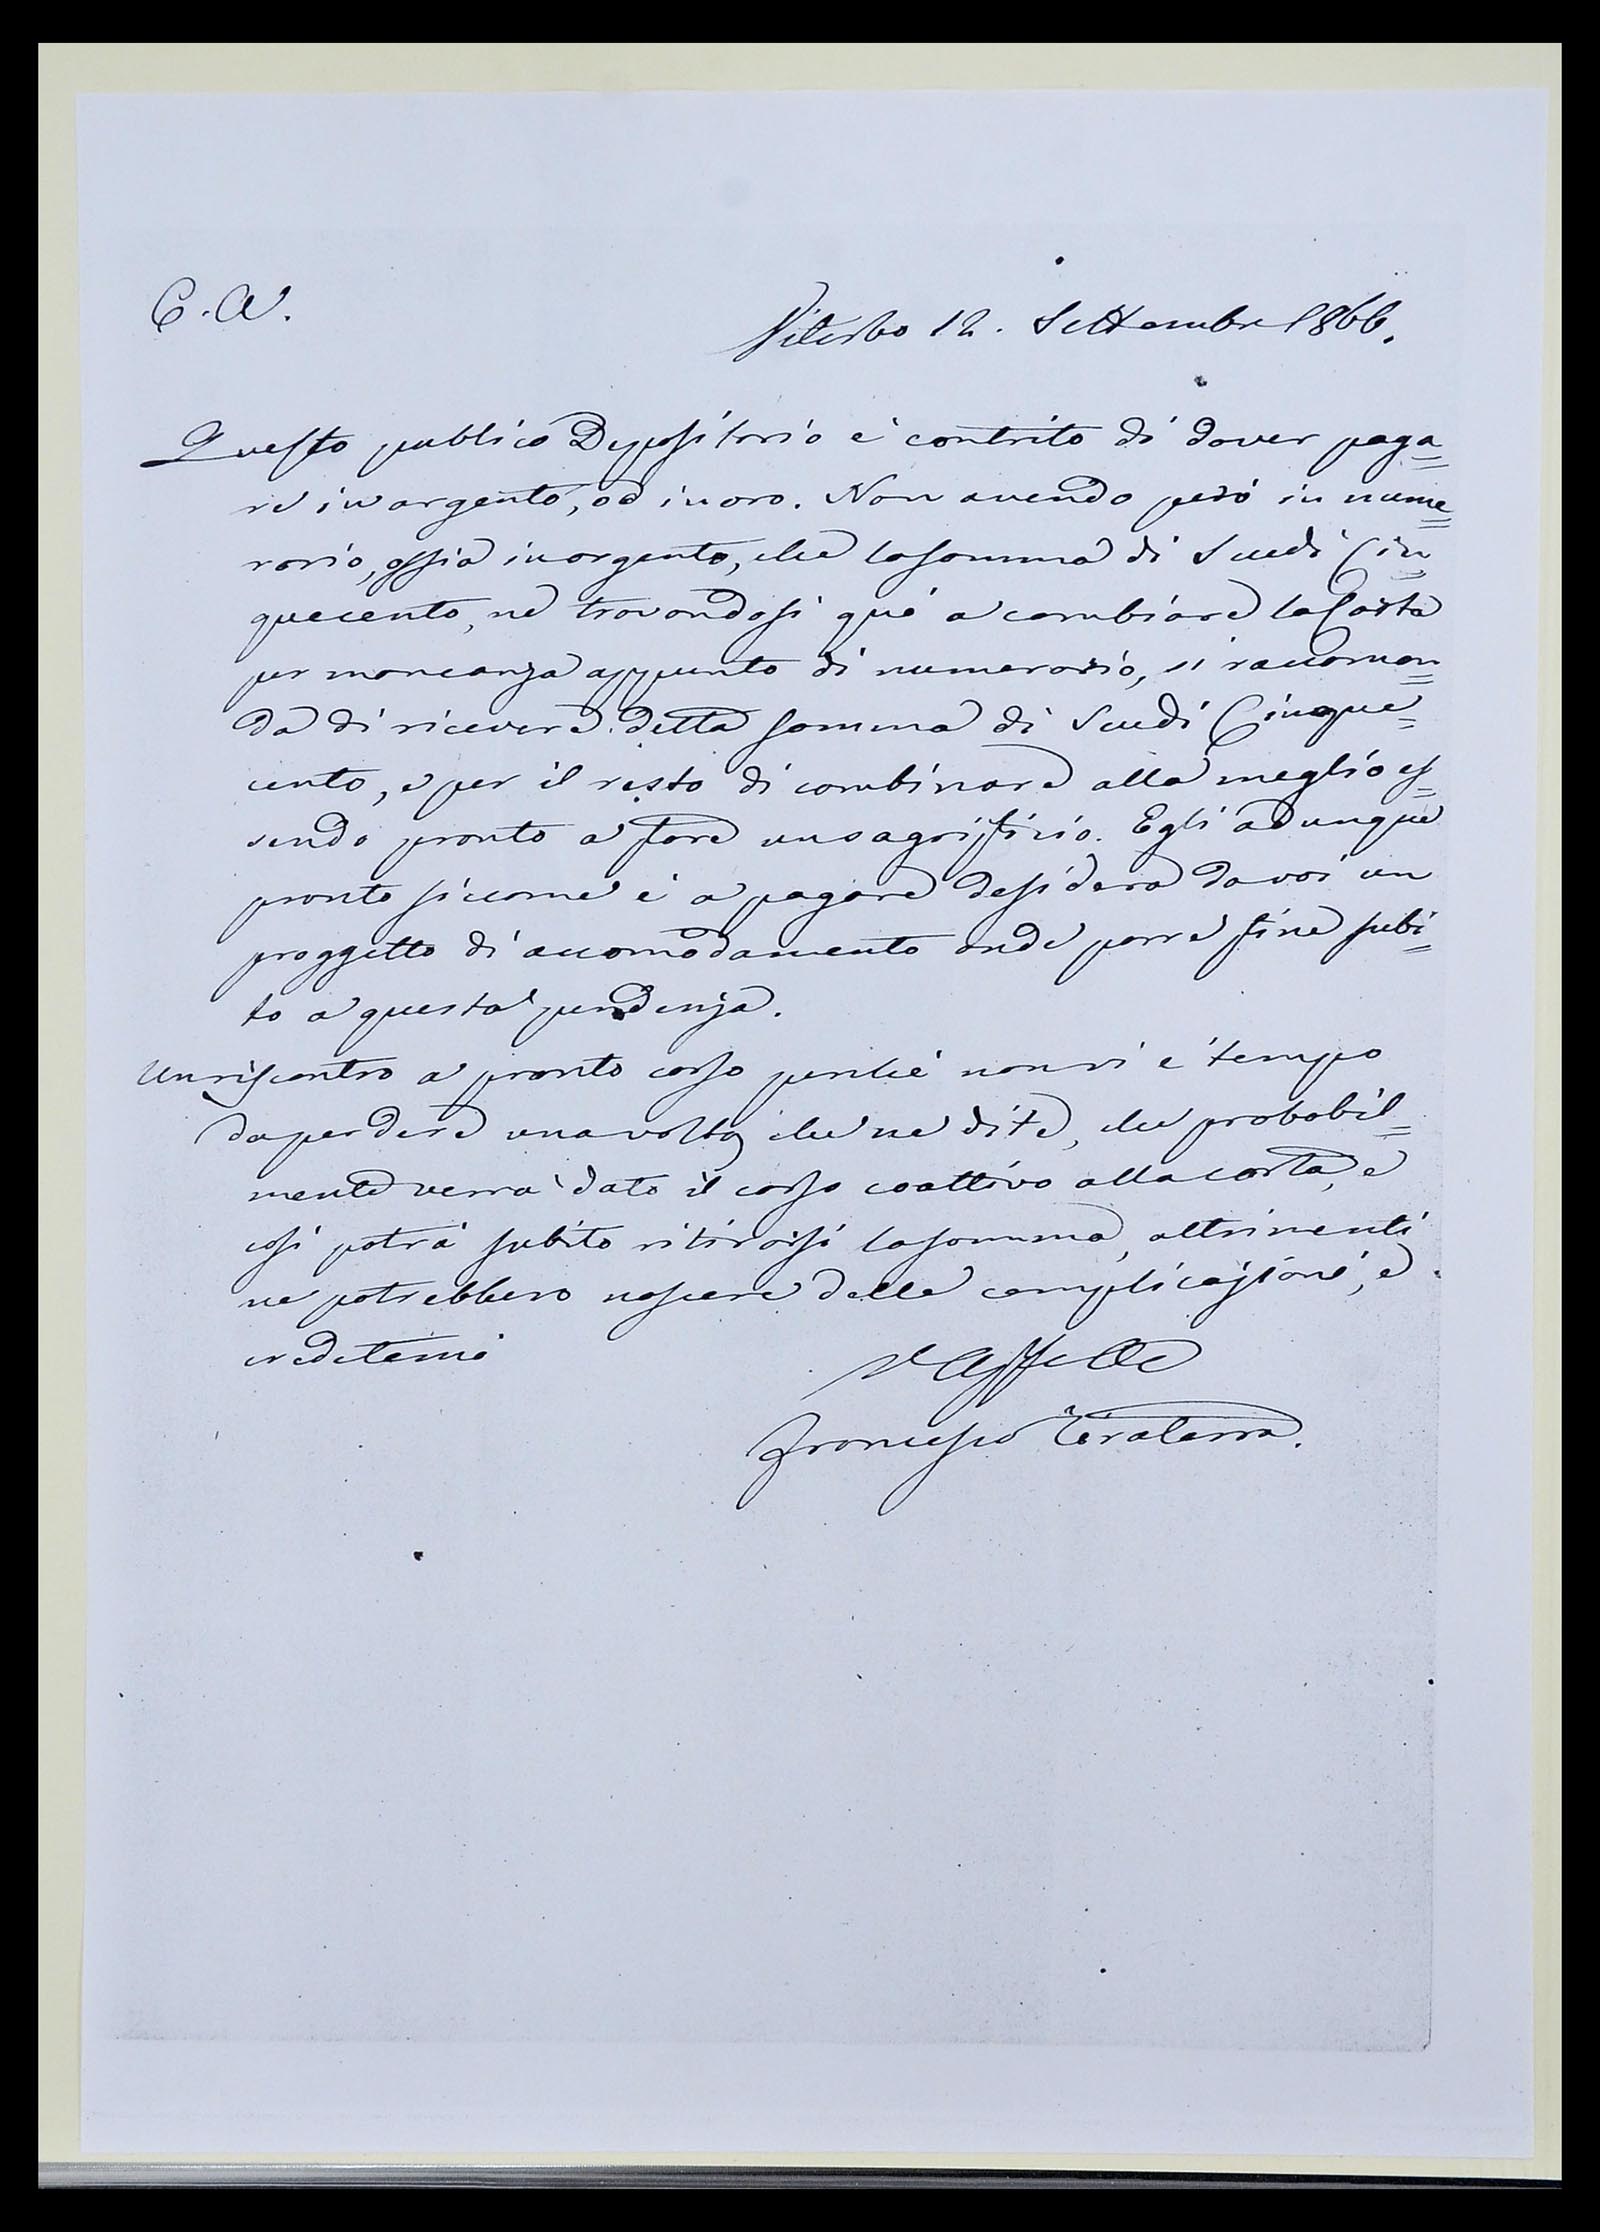 C. A.
Viterbo 12. Settembre 1866.
Questo publico Depositario è contrito di dover paga=
re in argento, od in oro. Non avendo però in nume=
rario, ossia in argento, che la somma di Scudi Cin=
quecento, nè trovandosi quà a cambiare la Carta
per mancanza appunto di numerario, si raccoman=
da di ricevere detta somma di Scudi Cinque=
cento, e per il resto di combinare alla meglio es=
sendo pronto a fare un sagrifficio. Egli adunque
pronto siccome è a pagare desidera da voi un
proggetto di accomodamento onde porre fine subi=
to a questa pendenza.
Un riscontro a pronto corso perchè non vi è tempo
da perdere una volta che ne dite, che probabil=
mente verrà dato il corso coattivo alla carta, e
così potrà subito ritirarsi la somma, altrimenti
ne potrebbero nascere delle complicazioni, e
credetemi
Francesco